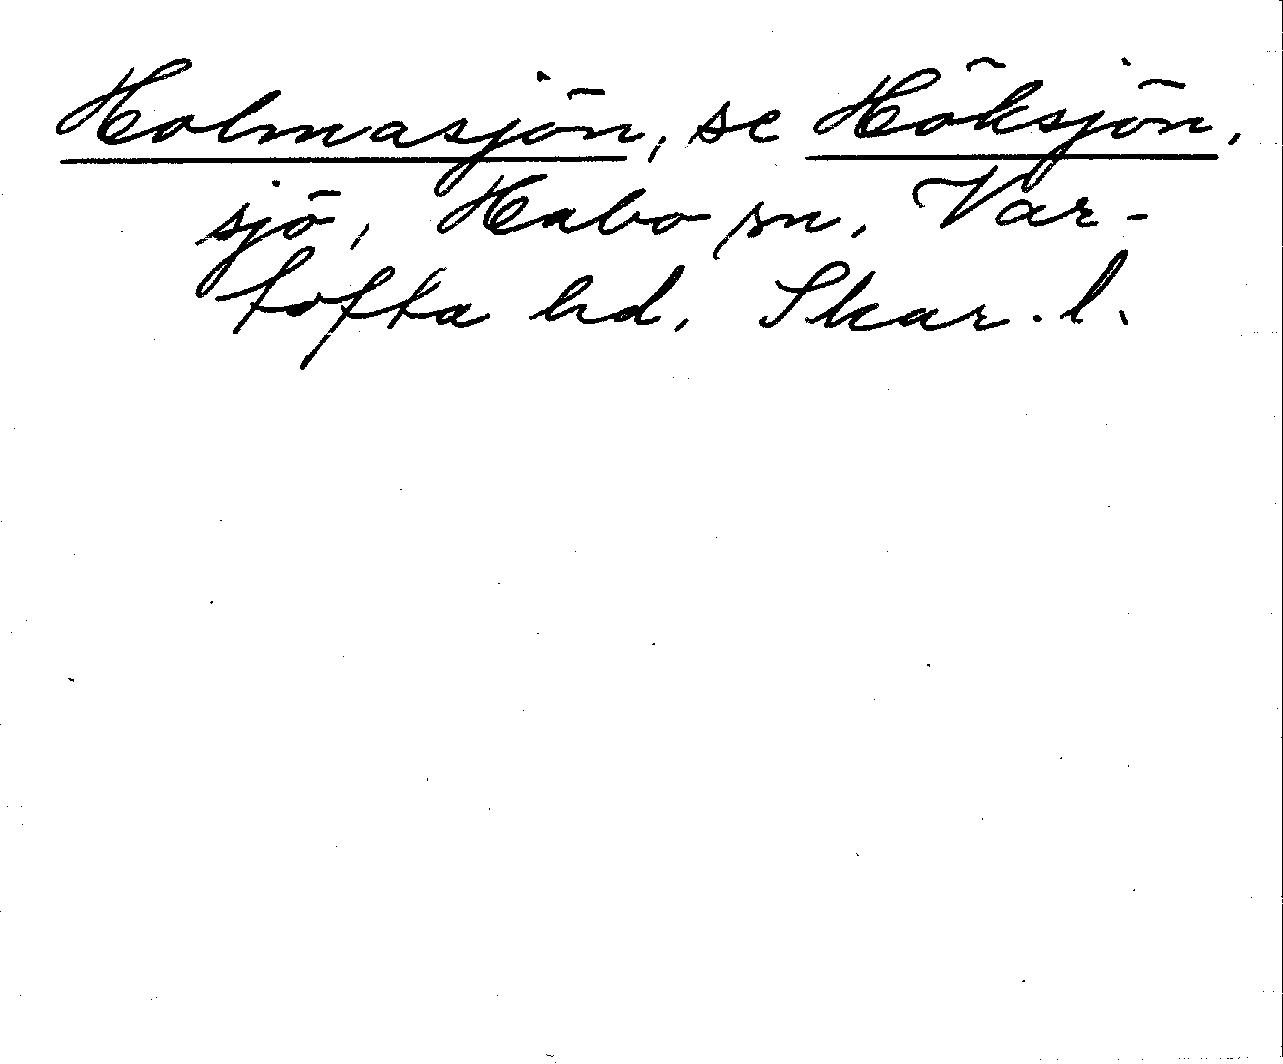 Holmasjön, se Höksjön,
sjö, Habo sn, Var-
tofta hd, Skar. l.